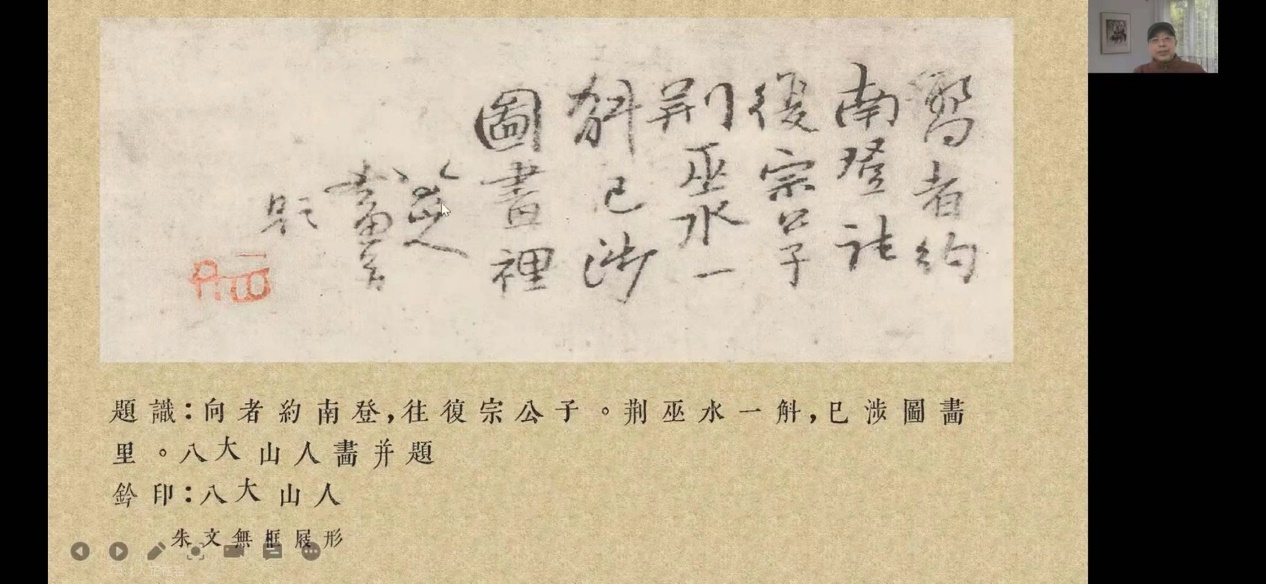 者約
南登
復宗公子
荆巫水一
斛已涉
圖畫裡
八大山人
畫并
題
題識：向者約南登，往復宗公子。荆巫水一斛，已涉圖畫
里。八大山人畫并題
鈐印：八大山人
朱文無框屐形